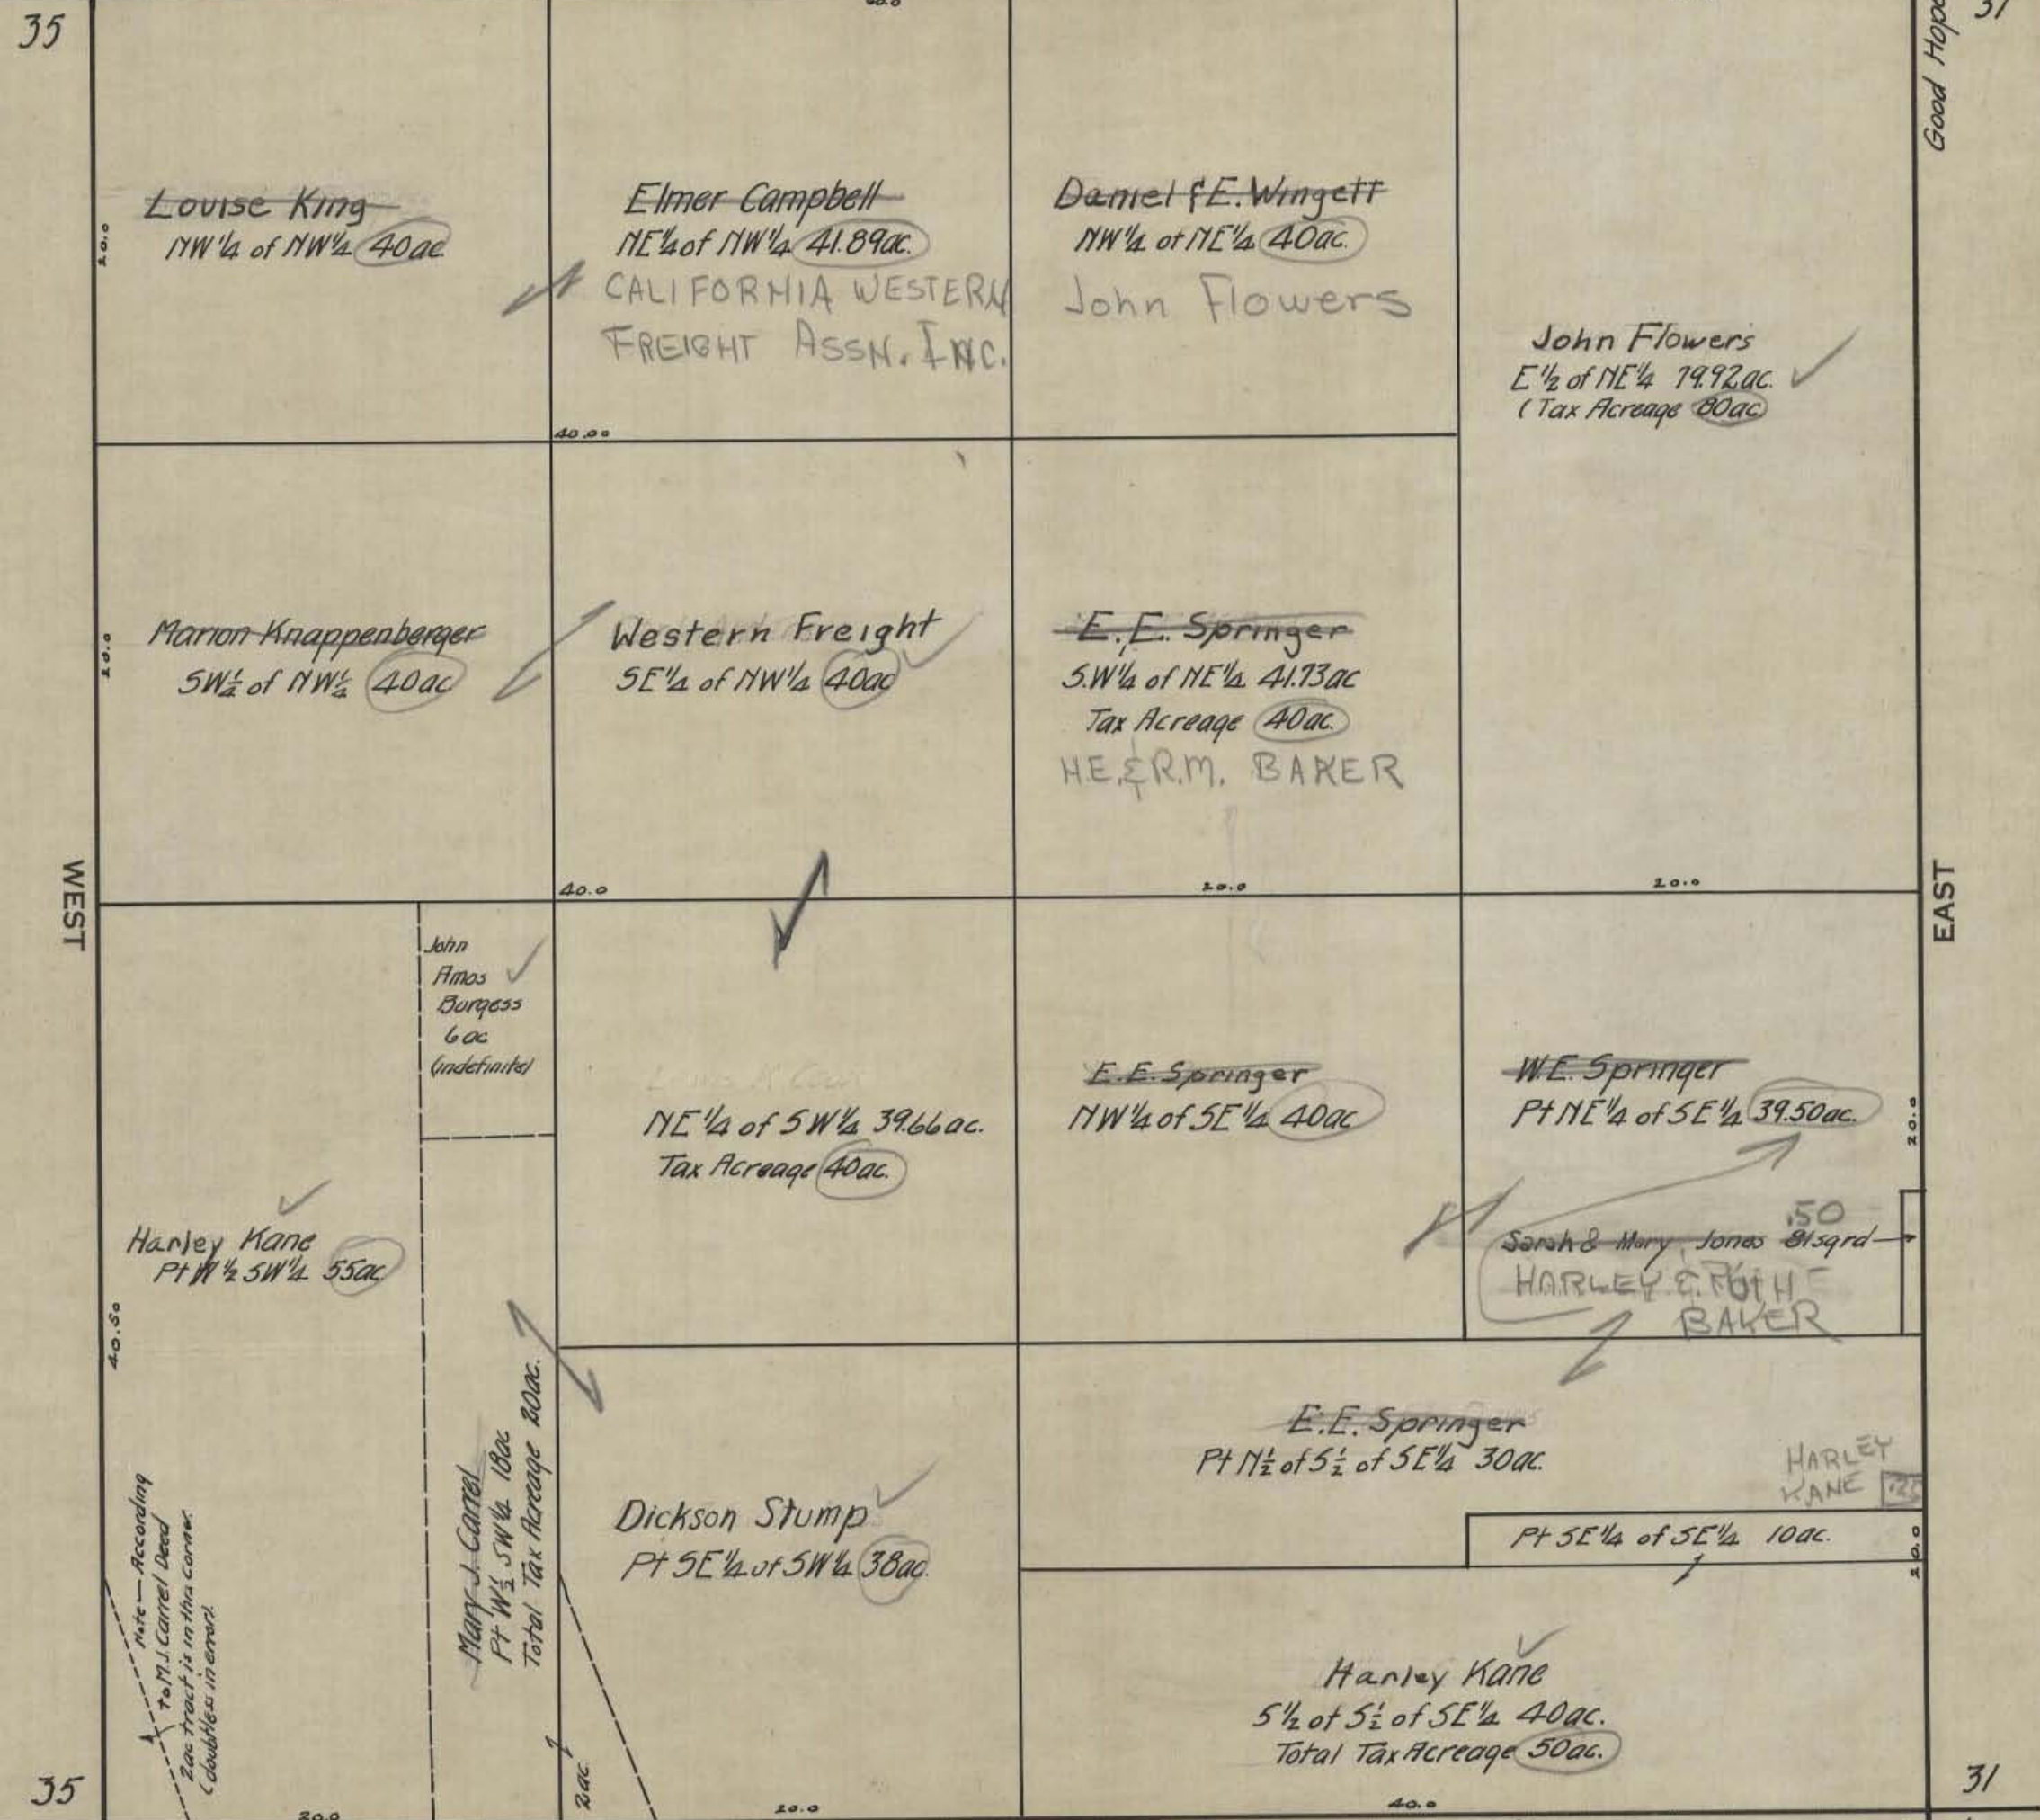 35
31
Good Hope
Louise King
NW 1/4 of NW 1/4 40ac
20.0
Elmer Campbell
NE 1/4 of NW 1/4 41.89ac.
CALIFORNIA WESTERN
FREIGHT ASSN. INC.
Daniel & E. Wingett
NW 1/4 of NE 1/4 40ac.
John Flowers
John Flowers
E 1/2 of NE 1/4 79.92ac.
(Tax Acreage 80ac)
40.00
Marion Knappenberger
SW 1/4 of NW 1/4 40ac
20.0
Western Freight
SE 1/4 of NW 1/4 40ac
E.E. Springer
S.W 1/4 of NE 1/4 41.73ac
Tax Acreage 40ac.
H.E. & R.M. BAKER
WEST
EAST
40.0
20.0
20.0
John
Amos
Burgess
6 ac
(indefinite)
NE 1/4 of SW 1/4 39.66ac.
Tax Acreage 40ac.
E.E. Springer
NW 1/4 of SE 1/4 40ac
W.E. Springer
Pt NE 1/4 of SE 1/4 39.50ac.
20.0
.50
Sarah & Mary Jones 81sqrd
HARLEY &
BAKER
Harley Kane
Pt W 1/2 SW 1/4 55ac
40.50
Mary J. Carrel
Pt W 1/2 SW 1/4 18ac
Total Tax Acreage 20ac.
E.E. Springer
Pt N 1/2 of S 1/2 of SE 1/4 30ac.
HARLEY
KANE
Pt SE 1/4 of SE 1/4 10ac.
20.0
Dickson Stump
Pt SE 1/4 of SW 1/4 38ac.
Note - According
to M.J. Carrel Deed
2ac tract is in this corner.
(doubtless in error).
2ac
Harley Kane
S 1/2 of S 1/2 of SE 1/4 40ac.
Total Tax Acreage 50ac.
35
31
20.0
20.0
40.0